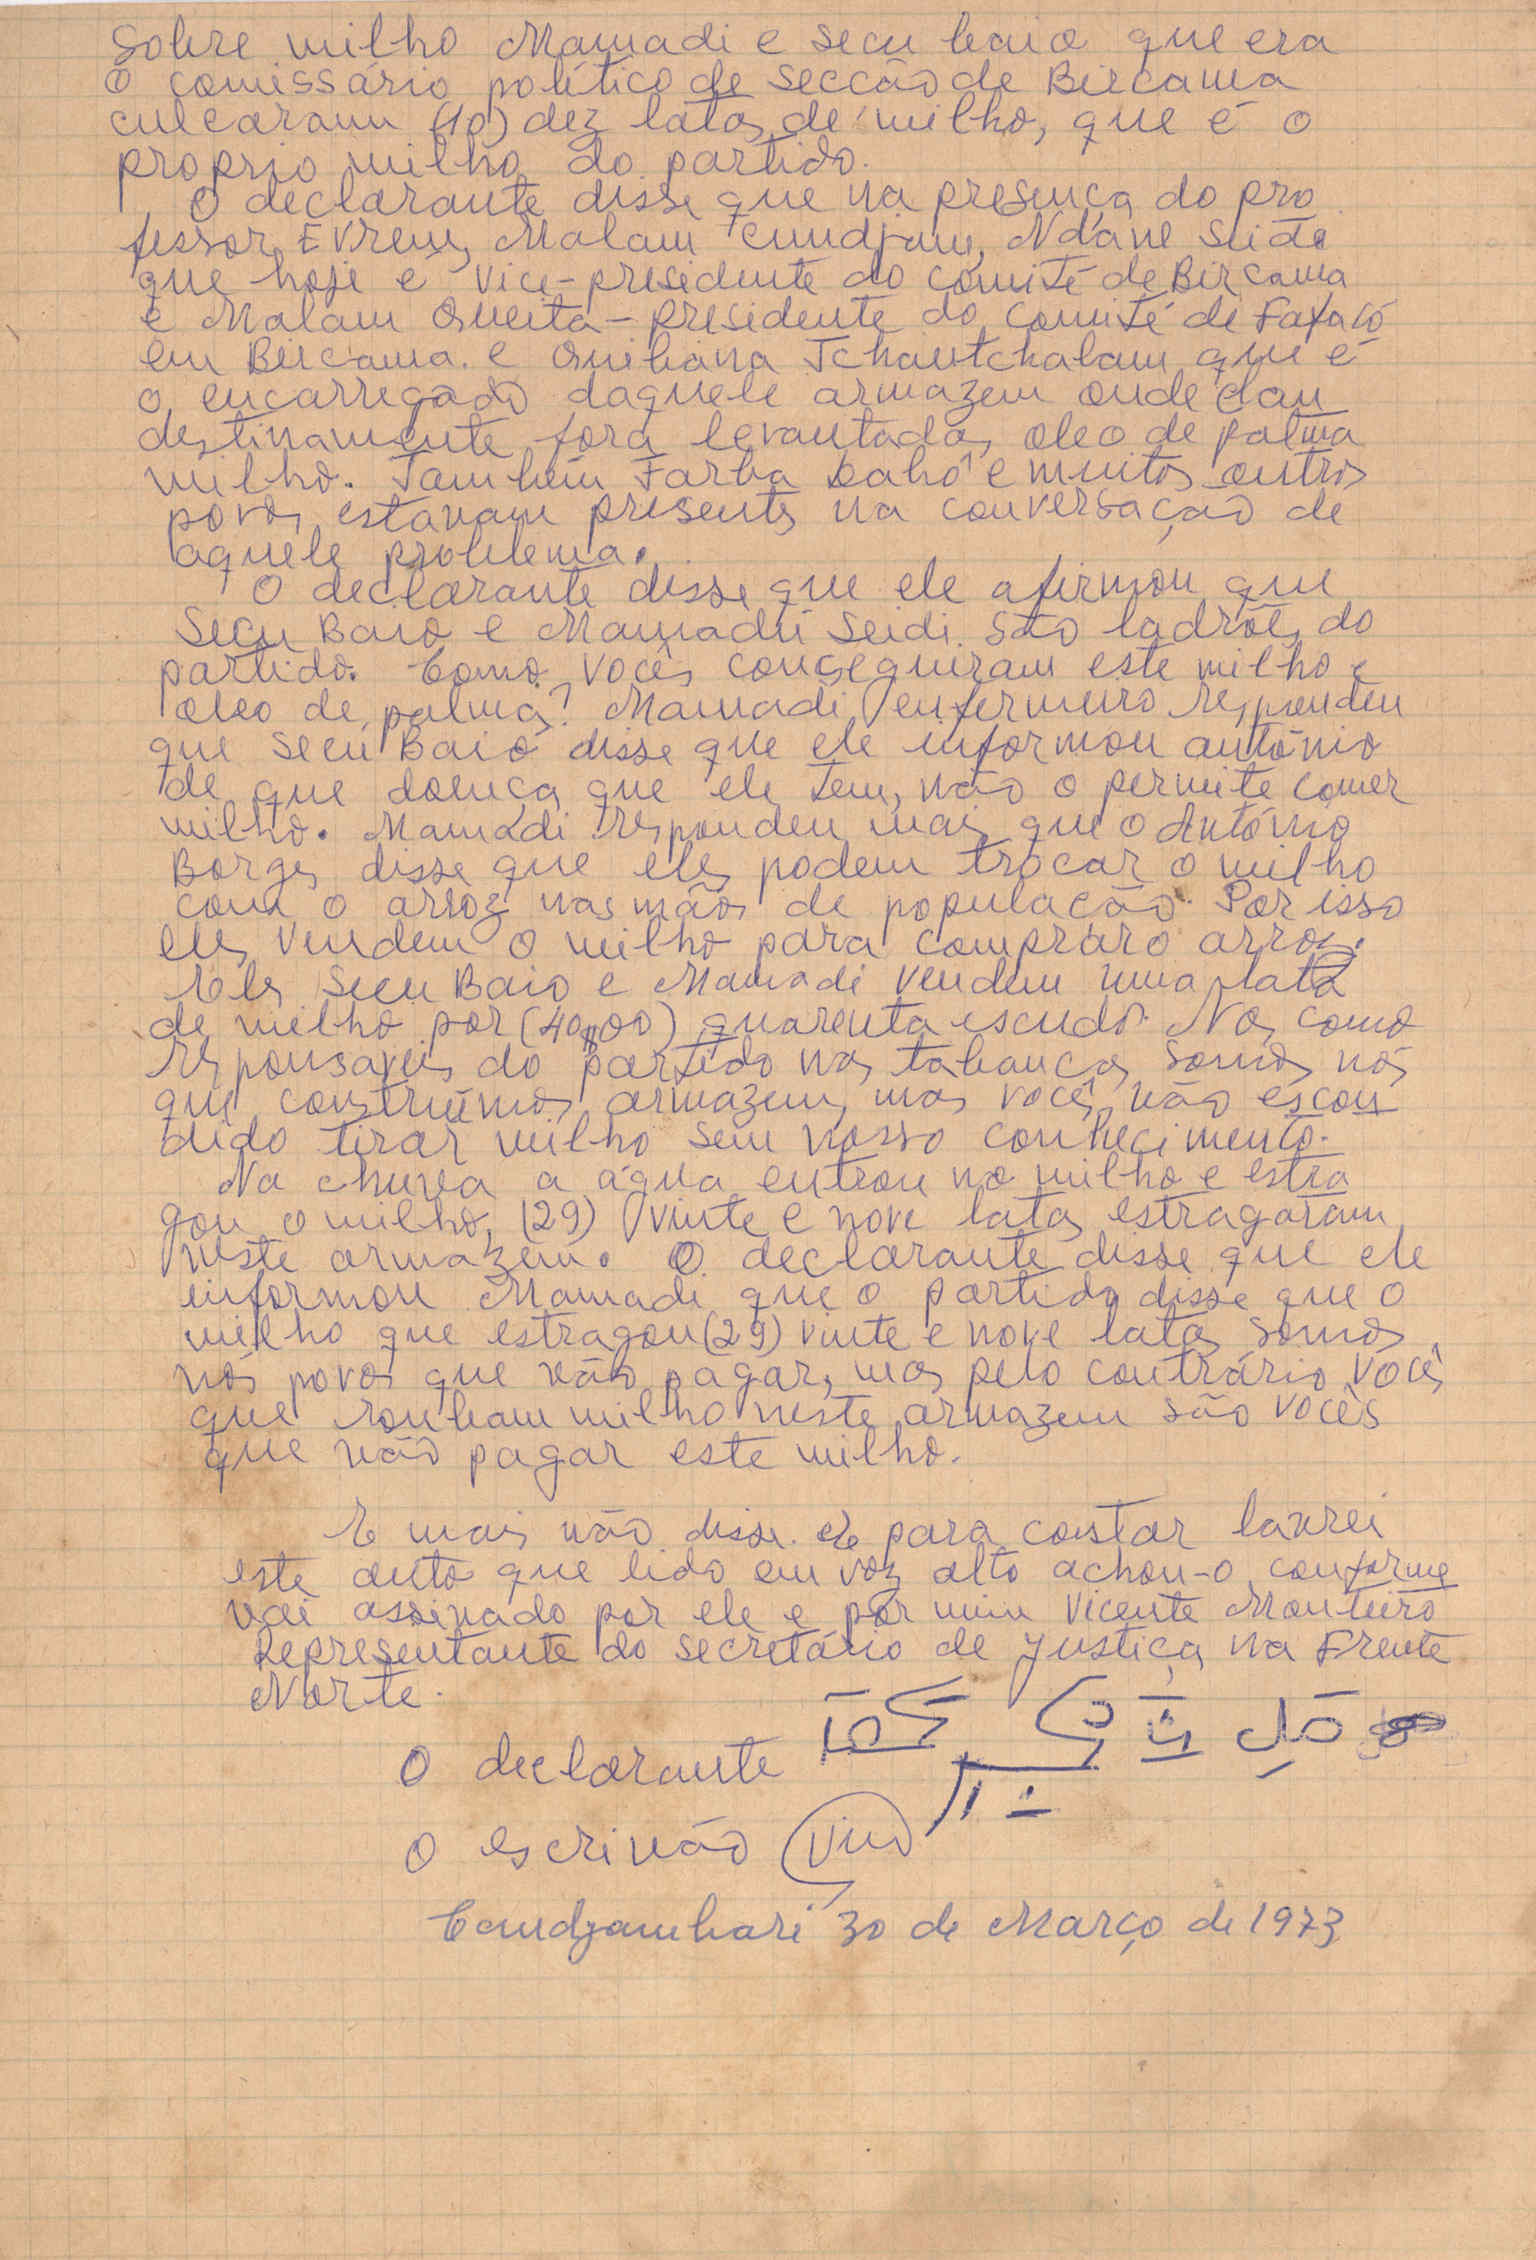 Sobre milho Mamadi e secu baio que era
o comissário político de secção de Bircama
culcaram (10) dez latas de milho, que é o
proprio milho do partido.
O declarante disse que na presença do pro
fessor Evrem, Malam Cundjam, N'dane Seide
que hoje é Vice-presidente do comité de Bircama
e Malam Queita - presidente do comité de Fafacó
em Bircama. e Quibana Tchantchalam que é
o encarregado daquele armazem onde clan
destinamente fora levantadas oleo de palma
milho. Também Farba Dahó e muitos outros
povos estavam presents na conversação de
aquele problema.
O declarante disse que ele afirmou que
Secu Baio e Mamadú Seidi são ladrões do
partido. Como vocês conseguiram este milho e
oleo de palma? Mamadi enfermeiro respondeu
que Secú Baió disse que ele informou antónio
de que doença que ele tem, não o permite comer
milho. Mamadi respondeu mais que o António
Borges disse que eles podem trocar o milho
com o arroz nas mãos de população. Por isso
eles vendem o milho para compraro arroz.
Eles Secu Baio e Mamadi vendem uma lata
de milho por (40$00) quarenta escudos. Nos como
responsaveis do partido nas tabancas somos nós
que construímos armazem, mas vocês vão escon
dido tirar milho sem nosso conhecimento.
Na chuva a água entrou no milho e estra
gou o milho, (29) vinte e nove latas estragaram
neste armazem. O declarante disse que ele
informou Mamadi que o partido disse que o
milho que estragou (29) vinte e nove latas somos
nós povos que vão pagar, mas pelo contrário vocês
que roubam milho neste armazem são vocês
que vão pagar este milho.
E mais não disse. e para constar lavrei
este auto que lido em voz alto achou-o conforme
vai assinado por ele e por mim Vicente Monteiro
Representante do secretário de justiça na Frente
Norte.
O declarante
O escrivão
Candjambari 30 de Março de 1973